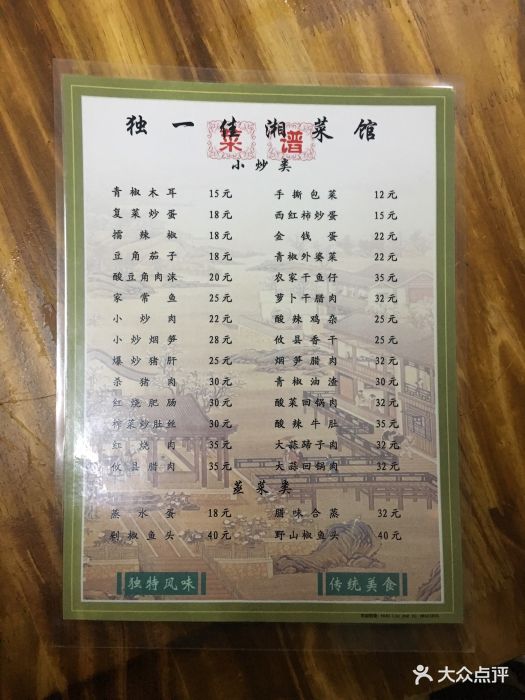 独一佳湘菜馆
菜谱
小炒类
青椒木耳 15元 手撕包菜 12元
复菜炒蛋 18元 西红柿炒蛋 15元
擂辣椒 18元 金钱蛋 22元
豆角茄子 18元 青椒外婆菜 22元
酸豆角肉沫 20元 农家干鱼仔 35元
家常鱼 25元 萝卜干腊肉 32元
小炒肉 22元 酸辣鸡杂 25元
小炒烟笋 28元 攸县香干 25元
爆炒猪肝 25元 烟笋腊肉 32元
杀猪肉 30元 青椒油渣 30元
红烧肥肠 30元 酸菜回锅肉 32元
榨菜炒肚丝 30元 酸辣牛肚 35元
红烧肉 35元 大蒜蹄子肉 32元
攸县腊肉 35元 大蒜回锅肉 32元
蒸菜类
蒸水蛋 18元 腊味合蒸 32元
剁椒鱼头 40元 野山椒鱼头 40元
独特风味 传统美食
大众点评